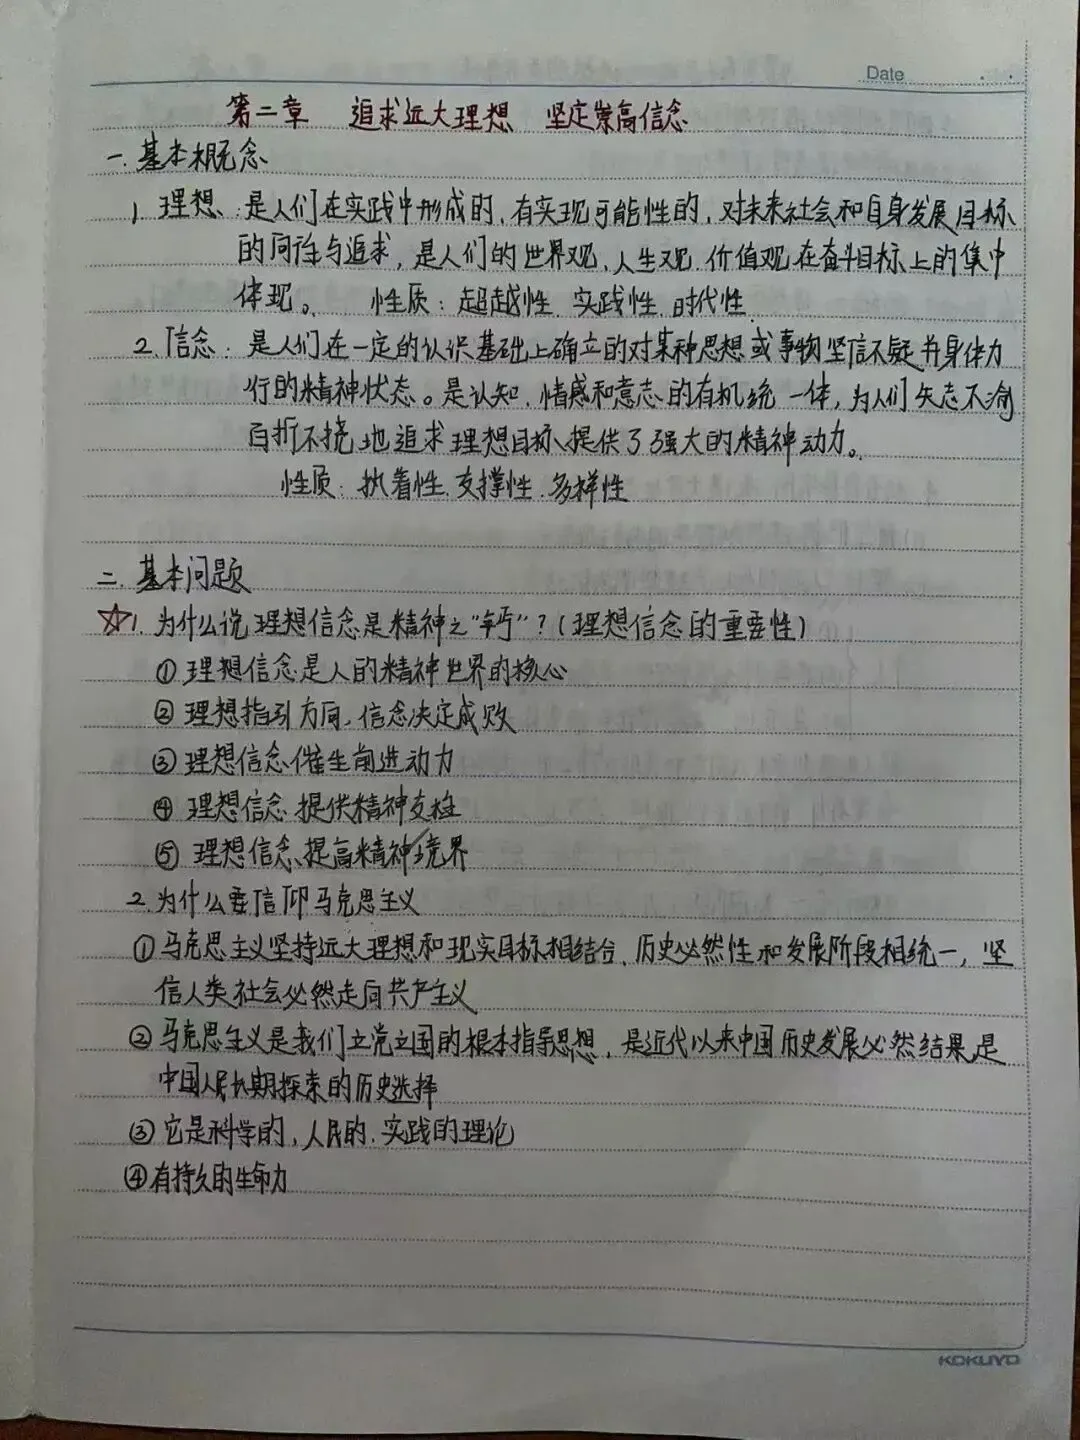 Date
第二章 追求远大理想 坚定崇高信念
一.基本概念
1.理想：是人们在实践中形成的，有实现可能性的，对未来社会和自身发展目标
的向往与追求，是人们的世界观、人生观、价值观在奋斗目标上的集中
体现。 性质：超越性、实践性、时代性
2.信念：是人们在一定的认识基础上确立的对某种思想或事物坚信不疑并身体力
行的精神状态。是认知、情感和意志的有机统一体，为人们矢志不渝
百折不挠地追求理想目标提供了强大的精神动力。
性质：执着性、支撑性、多样性
二.基本问题
☆1.为什么说理想信念是精神之"钙"？（理想信念的重要性）
①理想信念是人的精神世界的核心
②理想指引方向，信念决定成败
③理想信念催生前进动力
④理想信念提供精神支柱
⑤理想信念提高精神境界
2.为什么要信仰马克思主义
①马克思主义坚持远大理想和现实目标相结合、历史必然性和发展阶段相统一，坚
信人类社会必然走向共产主义
②马克思主义是我们立党立国的根本指导思想，是近代以来中国历史发展必然结果，是
中国人民长期探索的历史选择
③它是科学的，人民的，实践的理论
④有持久的生命力
KOKUYO